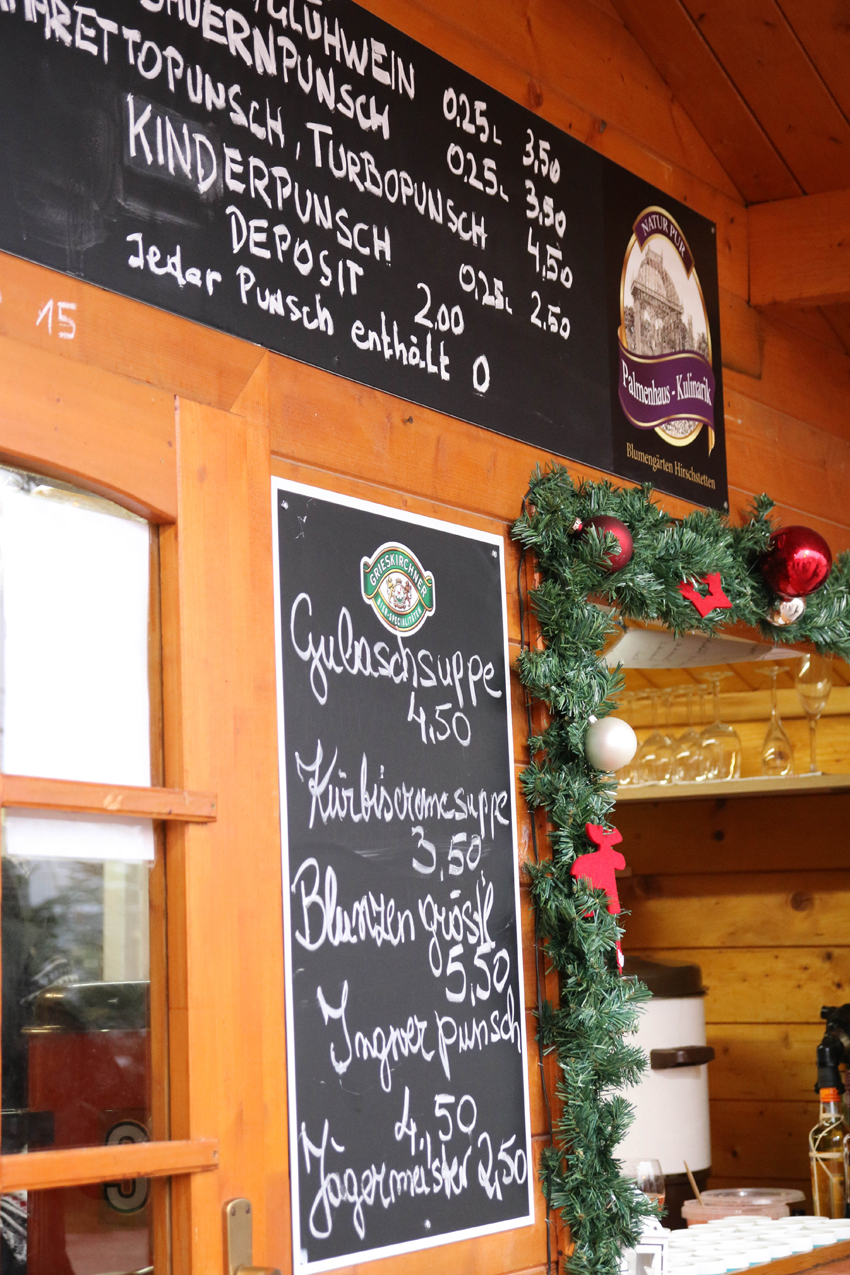 /GLÜHWEIN 0,25L 3,50
BAUERNPUNSCH 0,25L 3,50
AMARETTOPUNSCH, TURBOPUNSCH 4,50
KINDERPUNSCH 0,25L 2,50
DEPOSIT 2.00
Jeder Punsch enthält O
15
NATUR PUR
Palmenhaus - Kulinarik
Blumengärten Hirschstetten
GRIESKIRCHNER
BIER-SPECIALITÄTEN
Gulaschsuppe
4,50
Kürbiscremesuppe
3,50
Blunzengröstl
5,50
Ingverpunsch
4,50
Jägermeister 2,50